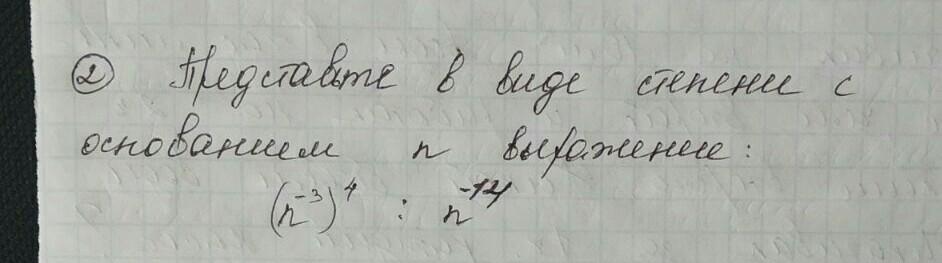 ② Представьте в виде степени с
основанием n выражение:
(n⁻³)⁴ : n⁻¹⁴